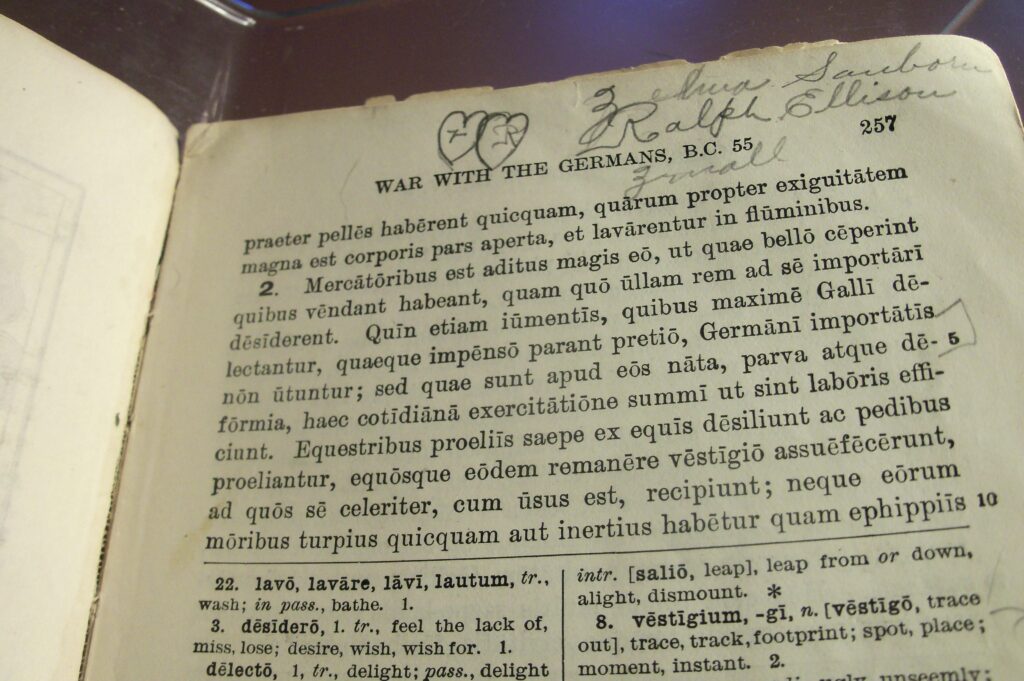 Zelma Sanborn
Ralph Ellison
257
WAR WITH THE GERMANS, B.C. 55
praeter pellēs habērent quicquam, quārum propter exiguitātem
magna est corporis pars aperta, et lavārentur in flūminibus.
2. Mercātōribus est aditus magis eō, ut quae bellō cēperint
quibus vēndant habeant, quam quō ūllam rem ad sē importārī
dēsīderent. Quīn etiam iūmentīs, quibus maximē Gallī dē-
lectantur, quaeque impēnsō parant pretiō, Germānī importātīs
nōn ūtuntur; sed quae sunt apud eōs nāta, parva atque dē- 5
fōrmia, haec cotīdiānā exercitātiōne summī ut sint labōris effi-
ciunt. Equestribus proeliīs saepe ex equīs dēsiliunt ac pedibus
proeliantur, equōsque eōdem remanēre vēstīgiō assuēfēcērunt,
ad quōs sē celeriter, cum ūsus est, recipiunt; neque eōrum
mōribus turpius quicquam aut inertius habētur quam ephippiīs 10
22. lavō, lavāre, lāvī, lautum, tr.,
wash; in pass., bathe. 1.
3. dēsīderō, 1. tr., feel the lack of,
miss, lose; desire, wish, wish for. 1.
dēlectō, 1, tr., delight; pass., delight
intr. [saliō, leap], leap from or down,
alight, dismount. *
8. vēstīgium, -gī, n. [vēstīgō, trace
out], trace, track, footprint; spot, place;
moment, instant. 2.
unseemly;